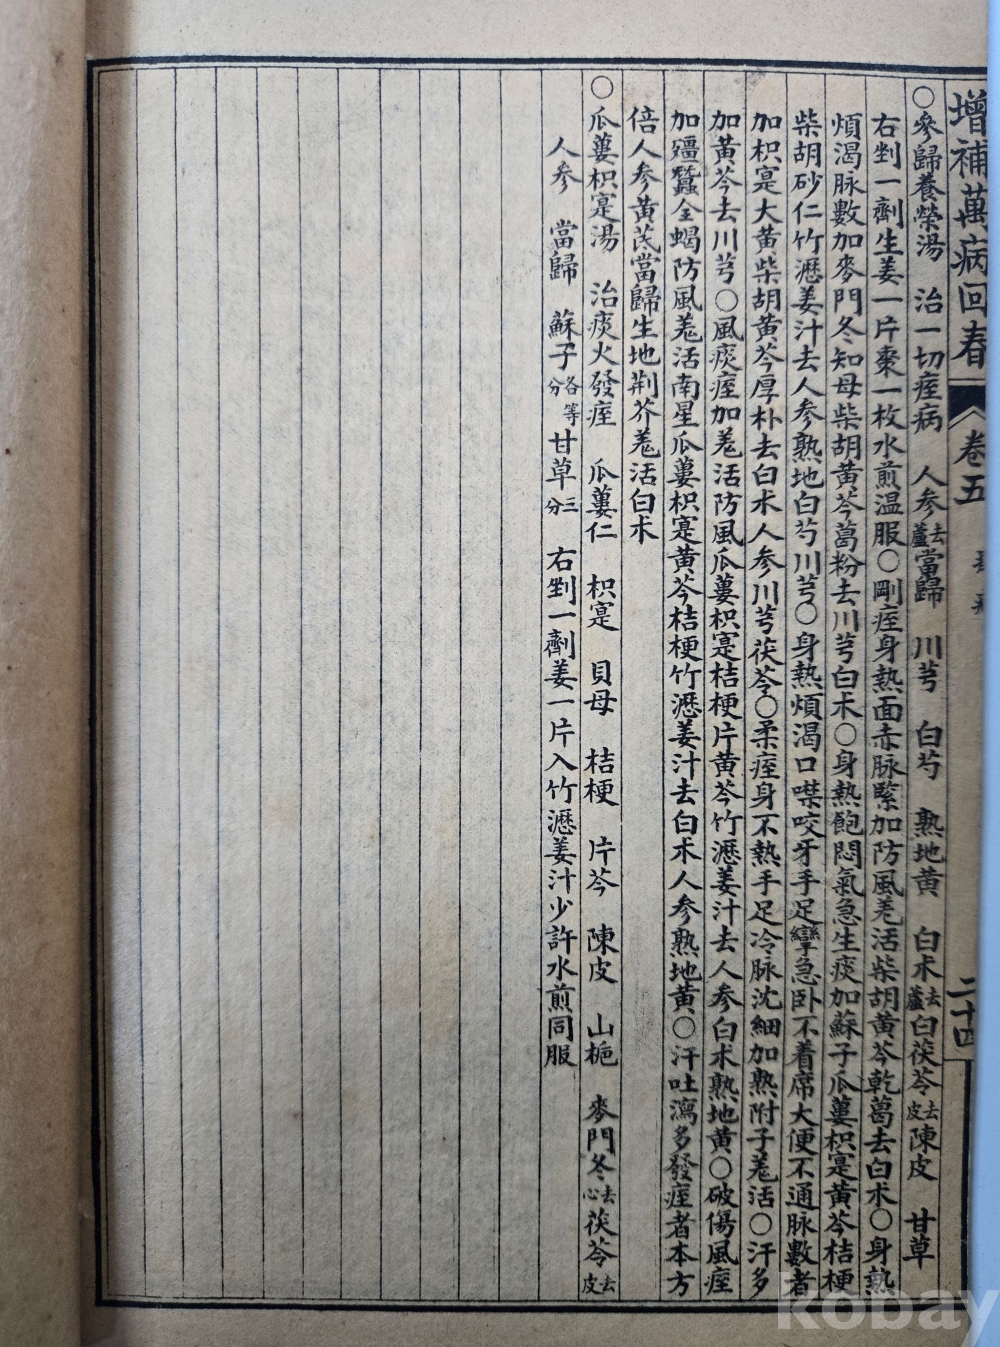 增補萬病回春 卷五 二十四
○參歸養榮湯 治一切痓病 人參去蘆當歸 川芎 白芍 熟地黃 白朮去蘆白茯苓去皮陳皮 甘草
右剉一劑生姜一片棗一枚水煎温服○剛痓身熱面赤脉緊加防風羌活柴胡黃芩乾葛去白朮○身熱
煩渴脉數加麥門冬知母柴胡黃芩葛粉去川芎白朮○身熱飽悶氣急生痰加蘇子瓜蔞枳寔黃芩桔梗
柴胡砂仁竹瀝姜汁去人參熟地白芍川芎○身熱煩渴口噤咬牙手足攣急卧不着席大便不通脉數者
加枳寔大黃柴胡黃芩厚朴去白朮人參川芎茯苓○柔痓身不熱手足冷脉沈細加熟附子羌活○汗多
加黃芩去川芎○風痰痓加羌活防風瓜蔞枳寔桔梗片黃芩竹瀝姜汁去人參白朮熟地黃○破傷風痓
加殭蠶全蝎防風羌活南星瓜蔞枳寔黃芩桔梗竹瀝姜汁去白朮人參熟地黃○汗吐瀉多發痓者本方
倍人參黃芪當歸生地荆芥羌活白朮
○瓜蔞枳寔湯 治痰火發痓 瓜蔞仁 枳寔 貝母 桔梗 片芩 陳皮 山梔 麥門冬去心茯苓去皮
人參 當歸 蘇子各等分甘草三分 右剉一劑姜一片入竹瀝姜汁少許水煎同服
kobay